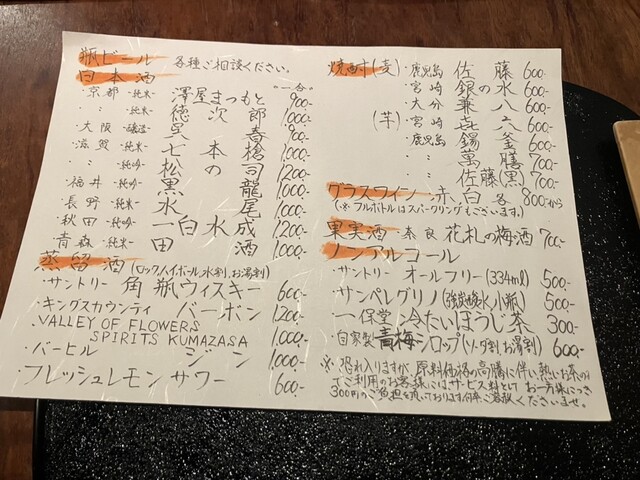 瓶ビール 各種ご相談ください。
日本酒 "一合"
・京都・純米 澤屋まつもと 900-
〃 ・純米 徳次郎 1,000-
・大阪・醸造 呉春 900-
・滋賀・純米 七本槍 1,000-
〃 ・純吟 松の司 1200-
・福井・純吟 黒龍 1,000-
・長野・純米 水尾 1,000-
・秋田・純吟 一白水成 1200-
・青森・純米 田酒 1,000-
蒸留酒(ロック,ハイボール,水割,お湯割)
・サントリー 角瓶ウィスキー 600-
・キングスカウンティ バーボン 1200-
・VALLEY OF FLOWERS
SPIRITS KUMAZASA 1,000-
・バーヒル ジン 1,000-
・フレッシュレモンサワー 600-
焼酎(麦)・鹿児島 佐藤 600-
・宮崎 銀の水 600-
・大分 兼八 600-
(芋)・宮崎 㐂六 600-
・鹿児島 錫釜 600-
〃 萬膳 700-
〃 佐藤(黒) 700-
グラスワイン・赤,白 各 800-から
(※フルボトルはスパークリングもございます。)
果実酒・奈良 花札の梅酒 700-
ノンアルコール
・サントリー オールフリー(334ml) 500-
・サンペレグリノ(強炭酸水,小瓶) 500-
・一保堂 冷たいほうじ茶 300-
・自家製 青梅シロップ(ソーダ割,お湯割) 600-
※恐れ入りますが、原料価格の高騰に伴い熱いお茶のみ
でご利用のお客様にはサービス料としてお一方様につき
300円のご負担を頂いております。何卒ご容赦くださいませ。